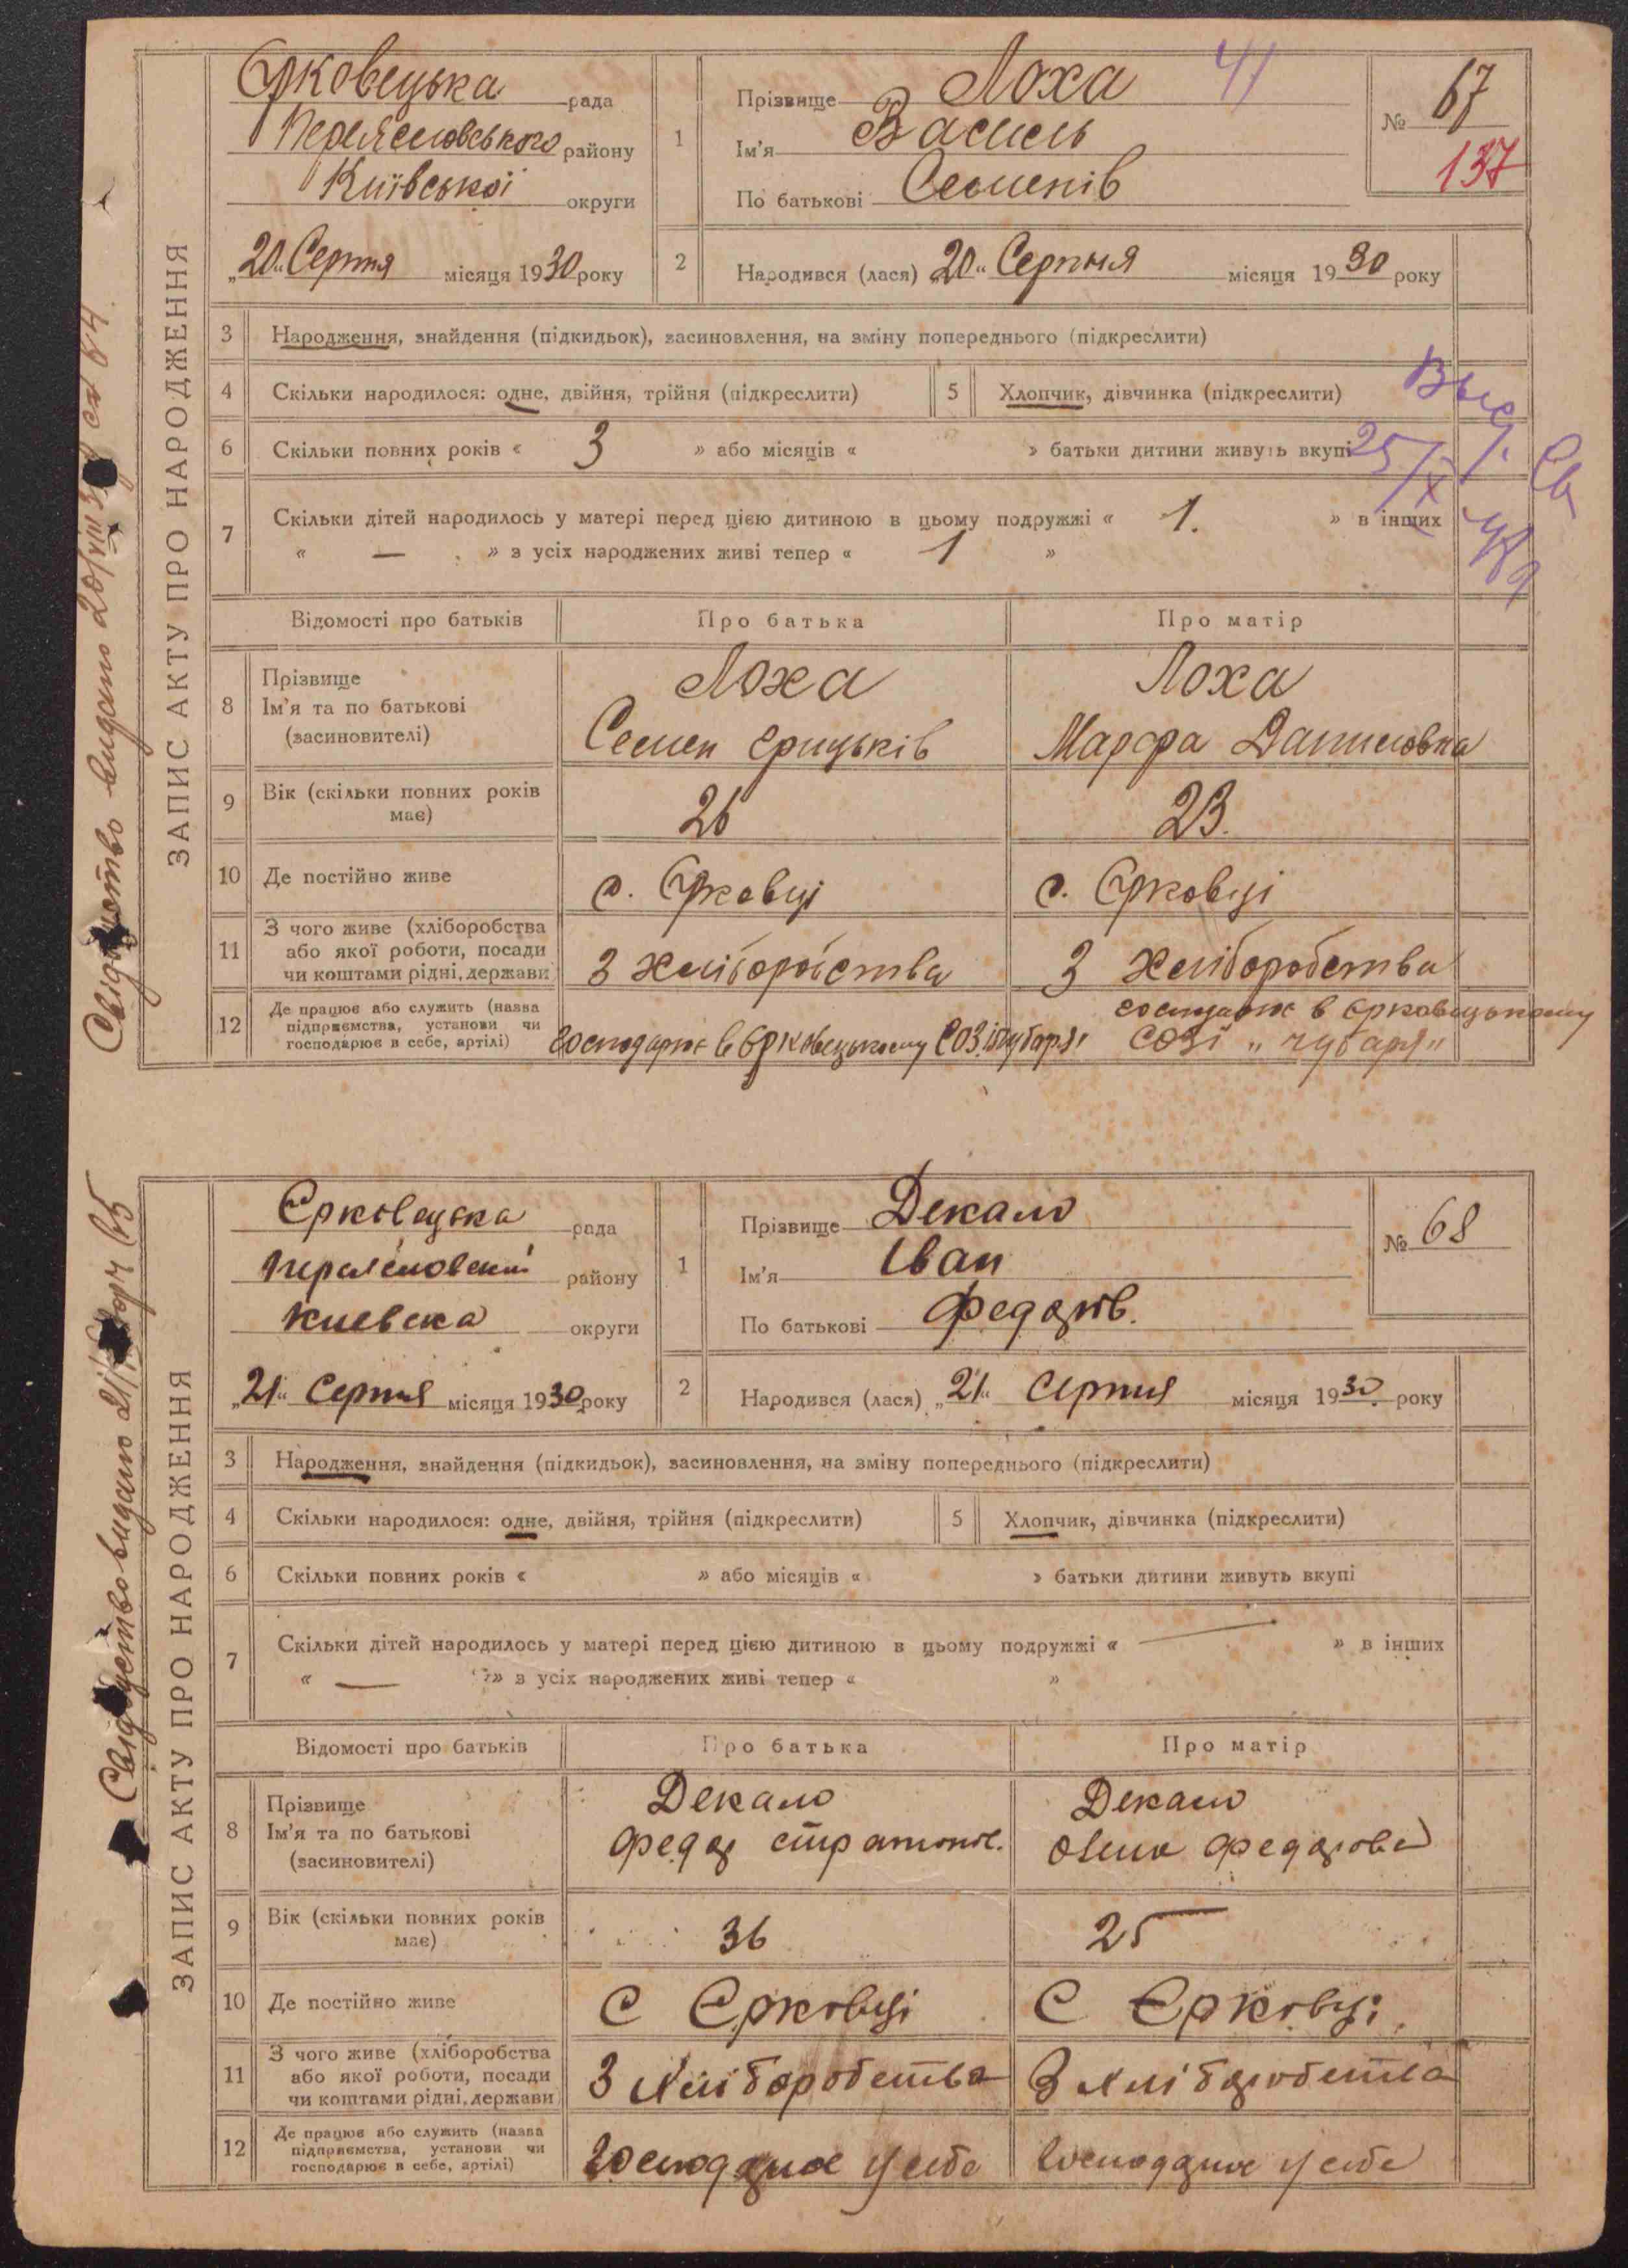 Єрковецька рада
Переяславського району
Київської округи
„20“ Серпня місяця 1930 року
1
Прізвище Лоха
Ім'я Василь
По батькові Семенів
41
№ 67
137
2
Народився (лася) „20“ Серпня місяця 1930 року
ЗАПИС АКТУ ПРО НАРОДЖЕННЯ
3 Народження, знайдення (підкидьок), засиновлення, на зміну попереднього (підкреслити)
4 Скільки народилося: одне, двійня, трійня (підкреслити)
5 Хлопчик, дівчинка (підкреслити)
6 Скільки повних років « 3 » або місяців « » батьки дитини живуть вкупі
25/X
7 Скільки дітей народилось у матері перед цією дитиною в цьому подружжі « 1. » в інших
« — » з усіх народжених живі тепер « 1 »
Відомості про батьків Про батька Про матір
8 Прізвище
Ім'я та по батькові
(засиновителі)
Лоха
Семен Грицьків
Лоха
Марфа Даниловна
9 Вік (скільки повних років
має)
26
23.
10 Де постійно живе
с. Єрковці
с. Єрковці
11 З чого живе (хліборобства
або якої роботи, посади
чи коштами рідні, держави
З хліборобства
З хліборобства
12 Де працює або служить (назва
підприємства, установи чи
господарює в себе, артілі)
господарює в Єрковецькому СОЗі „Чубаря“
господарює в Єрковецькому
СОЗі „Чубаря“
Свідоцтво видано 20/VIII 30
Єрковецька рада
Переяславський району
Киевска округи
„21“ Серпня місяця 1930 року
1
Прізвище Декало
Ім'я Іван
По батькові Федорів.
№ 68
2
Народився (лася) „21“ Серпня місяця 1930 року
ЗАПИС АКТУ ПРО НАРОДЖЕННЯ
3 Народження, знайдення (підкидьок), засиновлення, на зміну попереднього (підкреслити)
4 Скільки народилося: одне, двійня, трійня (підкреслити)
5 Хлопчик, дівчинка (підкреслити)
6 Скільки повних років « » або місяців « » батьки дитини живуть вкупі
7 Скільки дітей народилось у матері перед цією дитиною в цьому подружжі « — » в інших
« — » з усіх народжених живі тепер « »
Відомості про батьків Про батька Про матір
8 Прізвище
Ім'я та по батькові
(засиновителі)
Декало
Федор
Декало
Федорова
9 Вік (скільки повних років
має)
36
25
10 Де постійно живе
С Єрковці
С Єрковці
11 З чого живе (хліборобства
або якої роботи, посади
чи коштами рідні, держави
З хліборобства
З хліборобства
12 Де працює або служить (назва
підприємства, установи чи
господарює в себе, артілі)
Господарює у себе
Господарює у себе
Свідоцтво видано 21